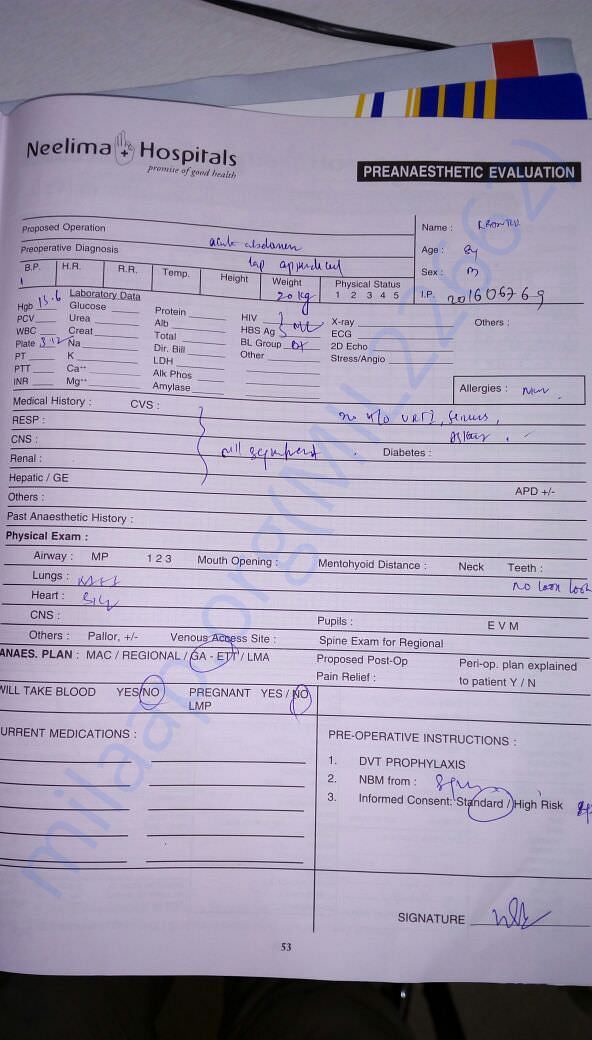 Neelima Hospitals
promise of good health
PREANAESTHETIC EVALUATION
Proposed Operation acute abdomen
Preoperative Diagnosis lap
Name :
Age : 8y
Sex : m
I.P. 201606769
B.P. H.R. R.R. Temp. Height Weight Physical Status
20 kg 1 2 3 4 5
Laboratory Data
Hgb 13.6 Glucose Protein HIV X-ray Others :
PCV Urea Alb HBS Ag ECG
WBC Creat Total BL Group 2D Echo
Plate 3.12 Na Dir. Bill Other Stress/Angio
PT K LDH
PTT Ca++ Alk Phos
INR Mg++ Amylase
Allergies :
Medical History : CVS :
RESP : no h/o URTI,
CNS : Diabetes :
Renal :
Hepatic / GE APD +/-
Others :
Past Anaesthetic History :
Physical Exam :
Airway : MP 1 2 3 Mouth Opening : Mentohyoid Distance : Neck Teeth :
Lungs : no
Heart : S1S2
CNS : Pupils : E V M
Others : Pallor, +/- Venous Access Site : Spine Exam for Regional
ANAES. PLAN : MAC / REGIONAL / GA - ETT / LMA Proposed Post-Op Pain Relief : Peri-op. plan explained to patient Y / N
WILL TAKE BLOOD YES/NO PREGNANT YES / NO
LMP
CURRENT MEDICATIONS :
PRE-OPERATIVE INSTRUCTIONS :
1. DVT PROPHYLAXIS
2. NBM from :
3. Informed Consent: Standard / High Risk
SIGNATURE
53
milaap.org(MIL22662)